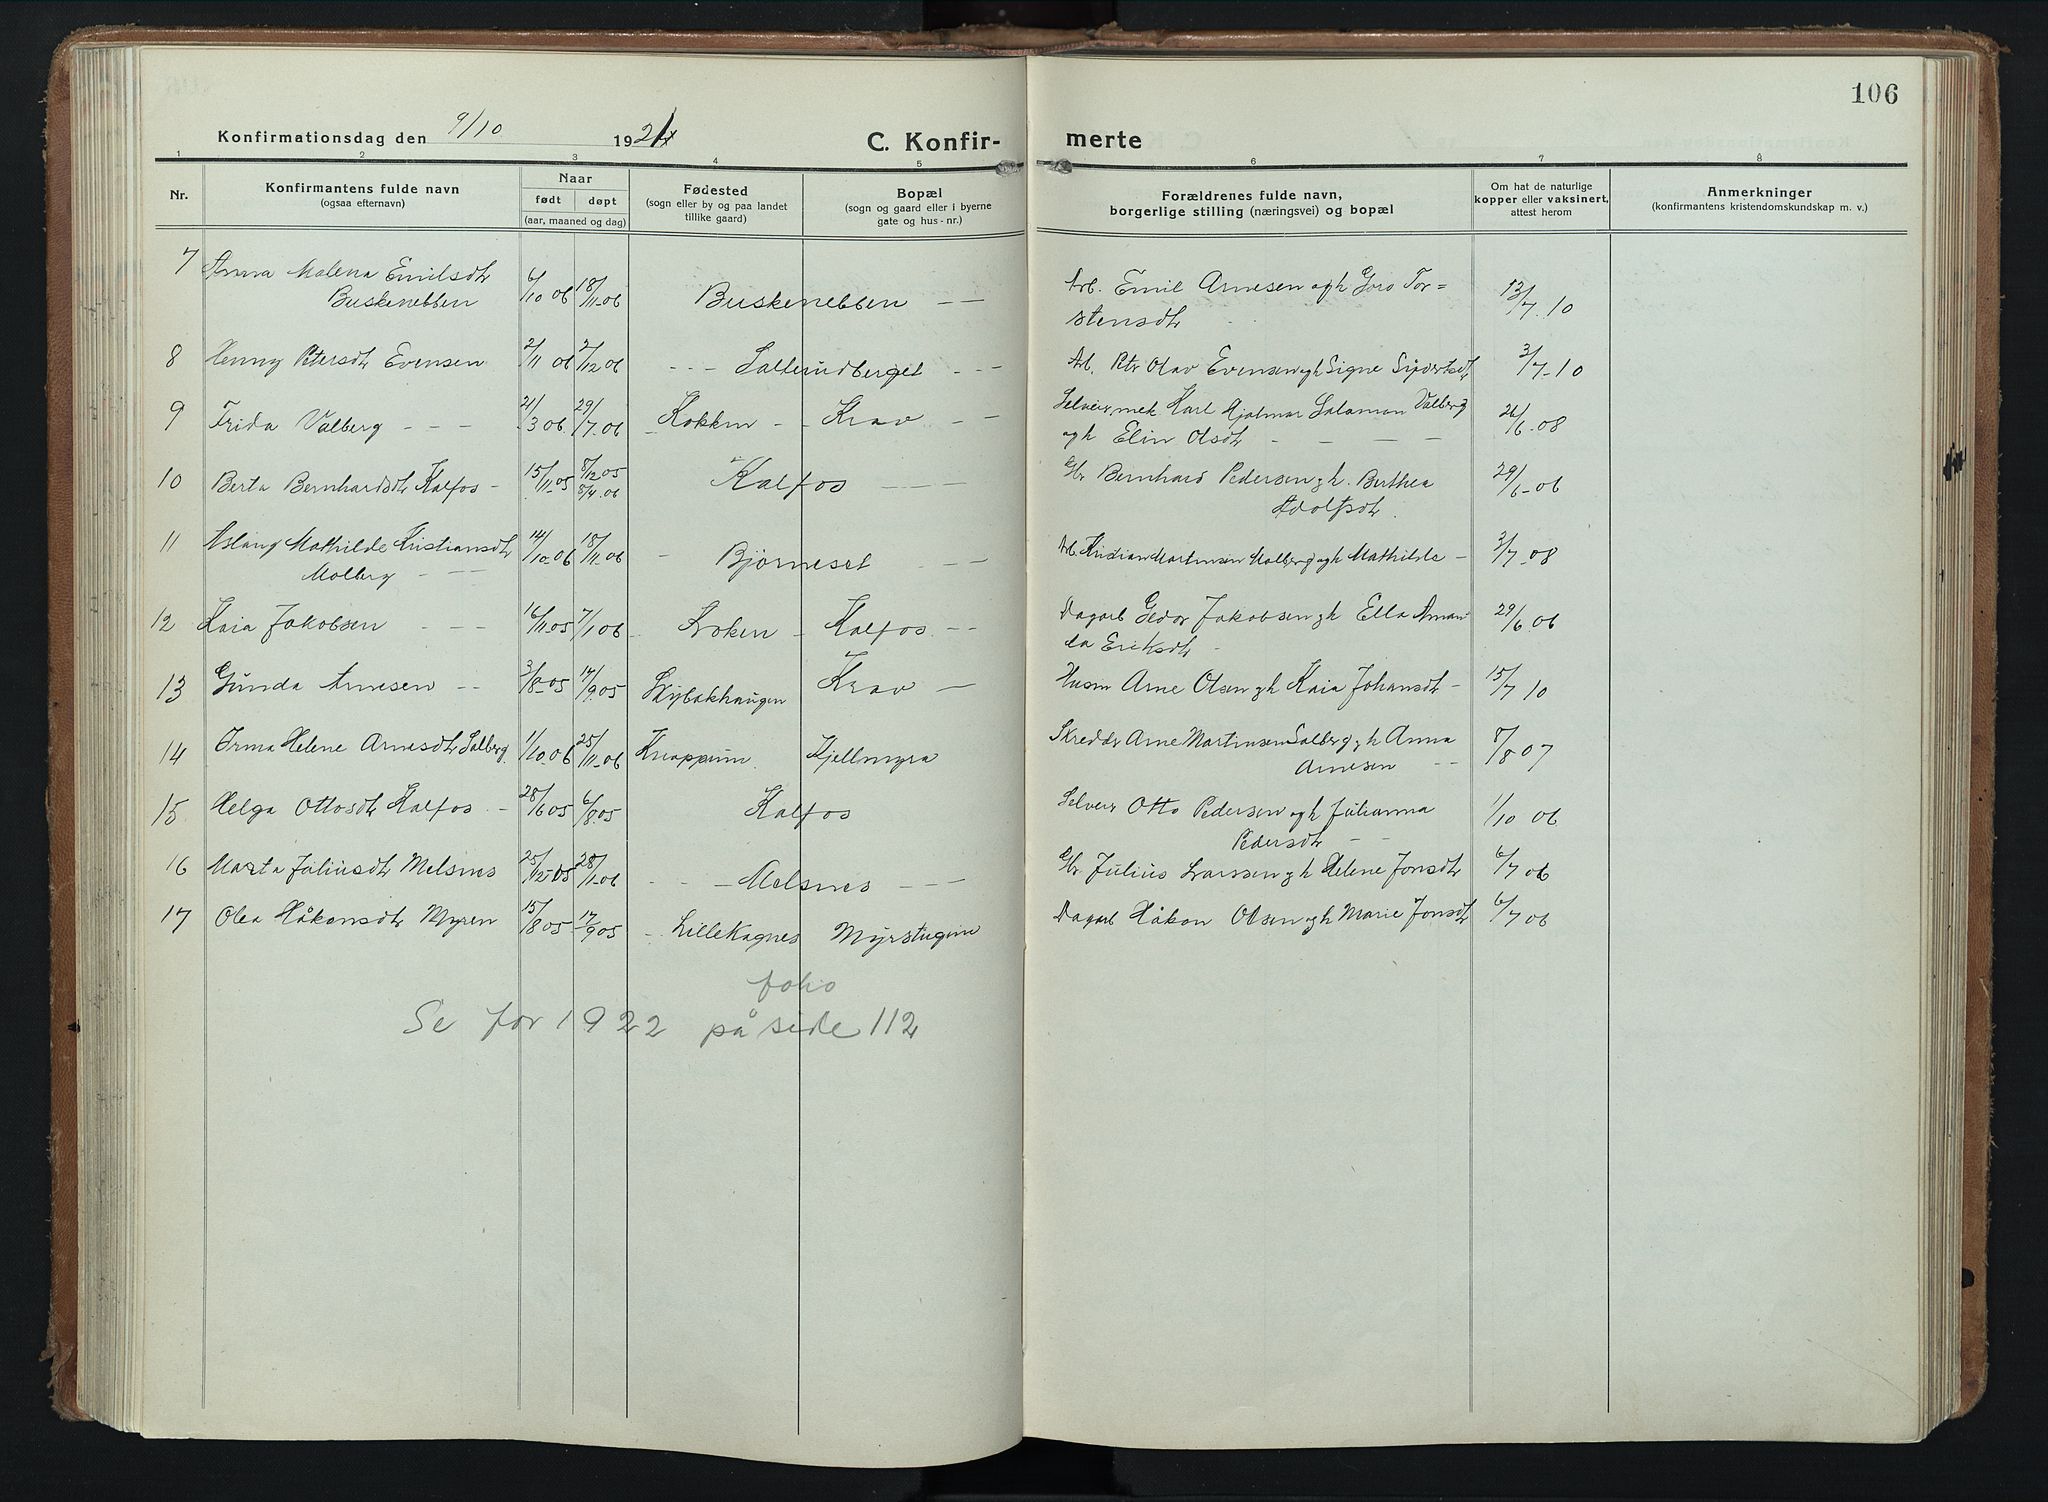 106
Konfirmationsdag den 9/10 1921
C. Konfir-
merte
1 2 3 4 5 6 7 8
Nr.
Konfirmantens fulde navn
(ogsaa efternavn)
Naar
født døpt
(aar, maaned og dag)
Fødested
(sogn eller by og paa landet
tillike gaard)
Bopæl
(sogn og gaard eller i byerne
gate og hus-nr.)
Forældrenes fulde navn,
borgerlige stilling (næringsvei) og bopæl
Om hat de naturlige
kopper eller vaksinert,
attest herom
Anmerkninger
(konfirmantens kristendomskundskap m. v.)
7 Anna Malena Emilsdtr 6/10 06 18/11-06 Arb. Emil Arnesen ogh Goro Tor= 13/7.10
Buskenebben Buskenebben — — stensdtr
8 Henny Petersdtr Evensen 2/11 06 2/12 06 - - - - - Arb. Petr Olav Evensen ogh Signe 3/7-10
9 Frida Valberg - - - 21/3 06 29/7-06 - - Krav - Selveier, mek Karl Hjalmar Salamon Valberg 26/6-08
ogh Elin Olsdtr - - - -
10 Berta Bernhardsdtr Kalfos - 15/11-05 8/12 05 8/4 06 Kalfos - - - Gbr Bernhard Pedersen ogh. Berthea 29/6-06
Adolfsdtr.
11 Aslaug Mathilde Kristiansdtr 14/10-06 18/11-06 - Bjørneset - - - Arb. Kristian Martinsen Molberg ogh Mathilde - 3/7-08
Molberg - - -
12 Kaia Jakobsen - - - 16/11-05 7/1 06 - - Kalfos - - Dagarb Jakobsen gh Ella Aman 29/6 06
da Eriksdtr -
13 Gunda Arnesen - - 3/8-05 17/9 05 Krav - Husm Arne Olsen gh Kaia Johansdtr - 15/7 10
14 Irma Helene Arnesdtr Salberg. 1/10 06 25/11-06 Kjellmyra Skredder Arne Martinsen Salberg gh Anna 8/8 07
Arnesen - -
15 Helga Ottosdtr Kalfos - 28/6 05 6/8 05 Kalfos Selveier Otto Pedersen ogh Julianna 1/10 06
Pedersdtr - -
16 Marta Juliusdtr Melsnes 25/12 05 28/1-06 - - - Melsnes - - - Gbr Julius Larssen gh Helene Jonsdtr 6/7 06
17 Olea Håkonsdtr Myren 15/8 05 17/9 05 - Lillekagnes Myrstugua Dagarb Håkon Olsen ogh Marie Jonsdtr 6/7 06
folio
Se for 1922 på side 112